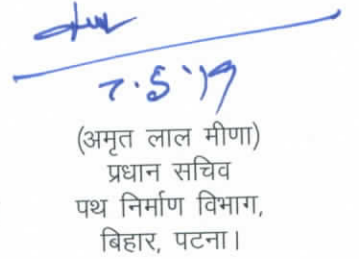 7.5.'19
(अमृत लाल मीणा)
प्रधान सचिव
पथ निर्माण विभाग,
बिहार, पटना।